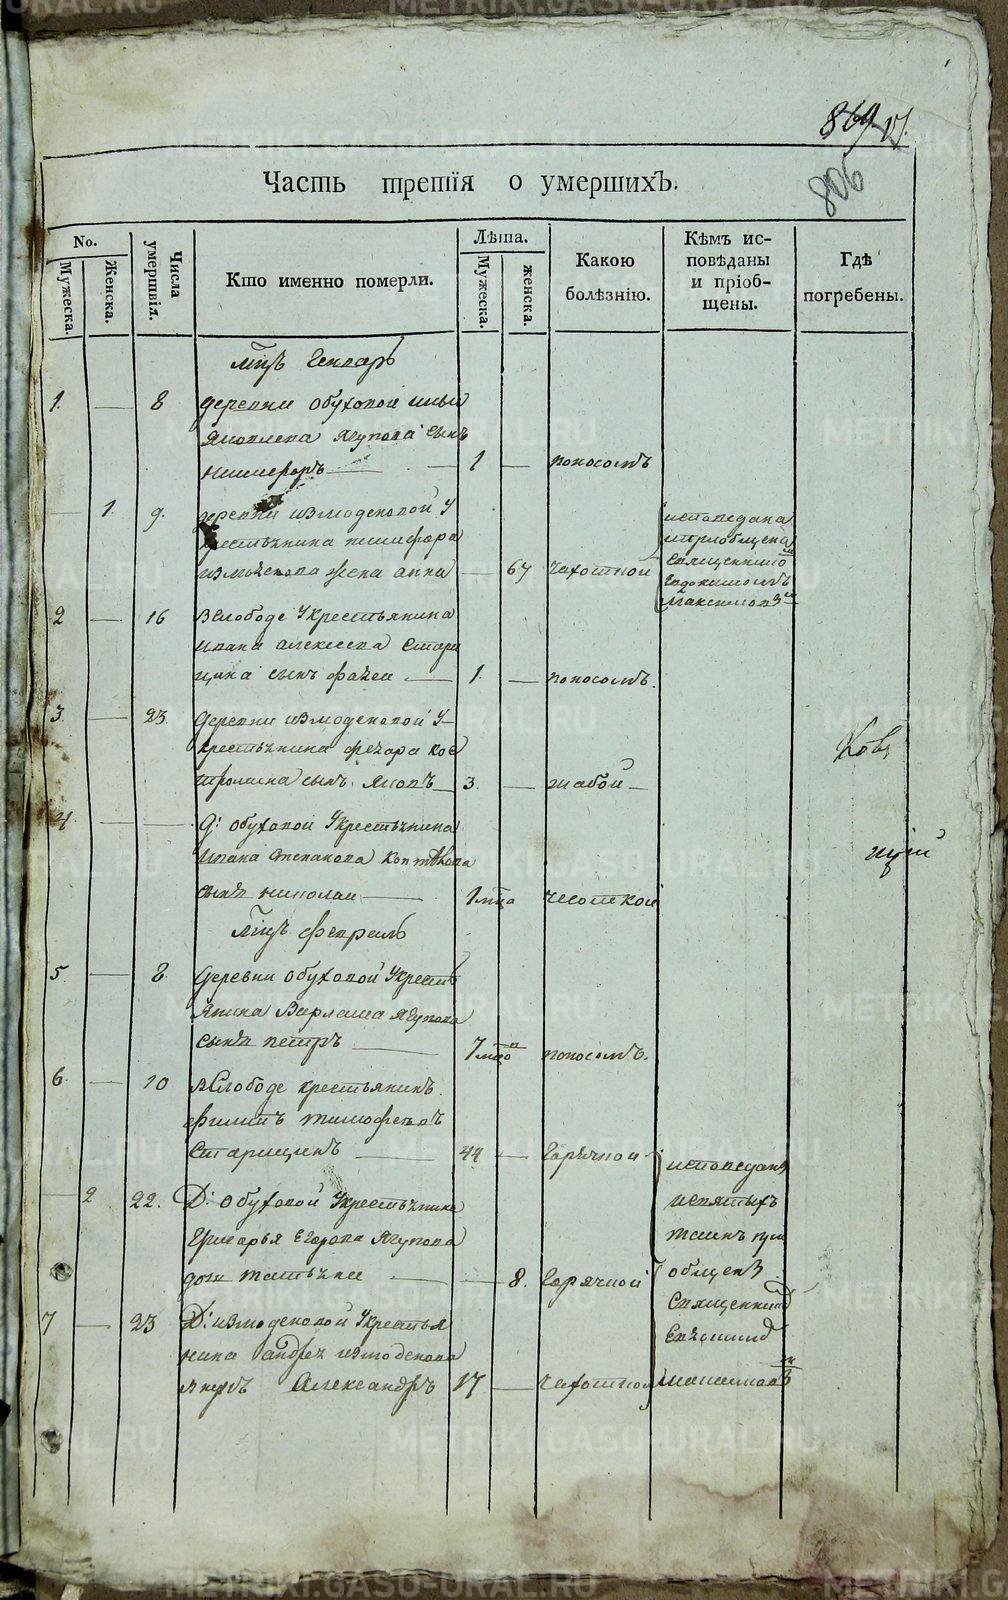 869
806
Часть третія о умершихъ.
No.
Мужеска.
Женска.
Числа умертвія.
Кто именно померли.
Лѣта.
Мужеска.
женска.
Какою болѣзнію.
Кѣмъ ис-
повѣданы
и пріоб-
щены.
Гдѣ
погребены.
Мцъ Генварь
1. — 8 деревни Обуховой
Яковлева Ягупова сынъ
Никифоръ — 1 — поносомъ
1. 9. деревни Измоденовой у
крестьянина Никифора
Измоденова жена Анна — 67 чахоткой
исповедана
и приобщена
священникомъ
Евдокимомъ
Максимовы
2 — 16 В Слободе у крестьянина
Ивана Алексеева Стари
цина сынъ Фадеи — 1. — поносомъ.
3. — 23. деревни Измоденовой у
крестьянина Федора Кос
тромина сынъ Яковъ 3. — жабой
4. — Д: Обуховой у крестьянина
Ивана Степанова Коптякова
сынъ Николаи — 1 мца чесоткой
Мцъ Февраль
5. — 8. деревни Обуховой у крест
янина Варлама Ягупова
сынъ Петръ — 7 поносомъ.
6. — 10 в Слободе крестьянинъ
Филипъ Тимофеевъ
Старицинъ — 44 — Горячкой
2 22. Д: Обуховой у крестьянина
Григорья Егорова Ягупова
дочь Татьяна — 8. Горячкой
7 — 23 Д: Измоденовой у крестья
нина Андрея Измоденова
внукъ Александръ 17 — чахоткой
исповеданъ
и святыхъ
таинъ при
общенъ
священник
Максимовъ